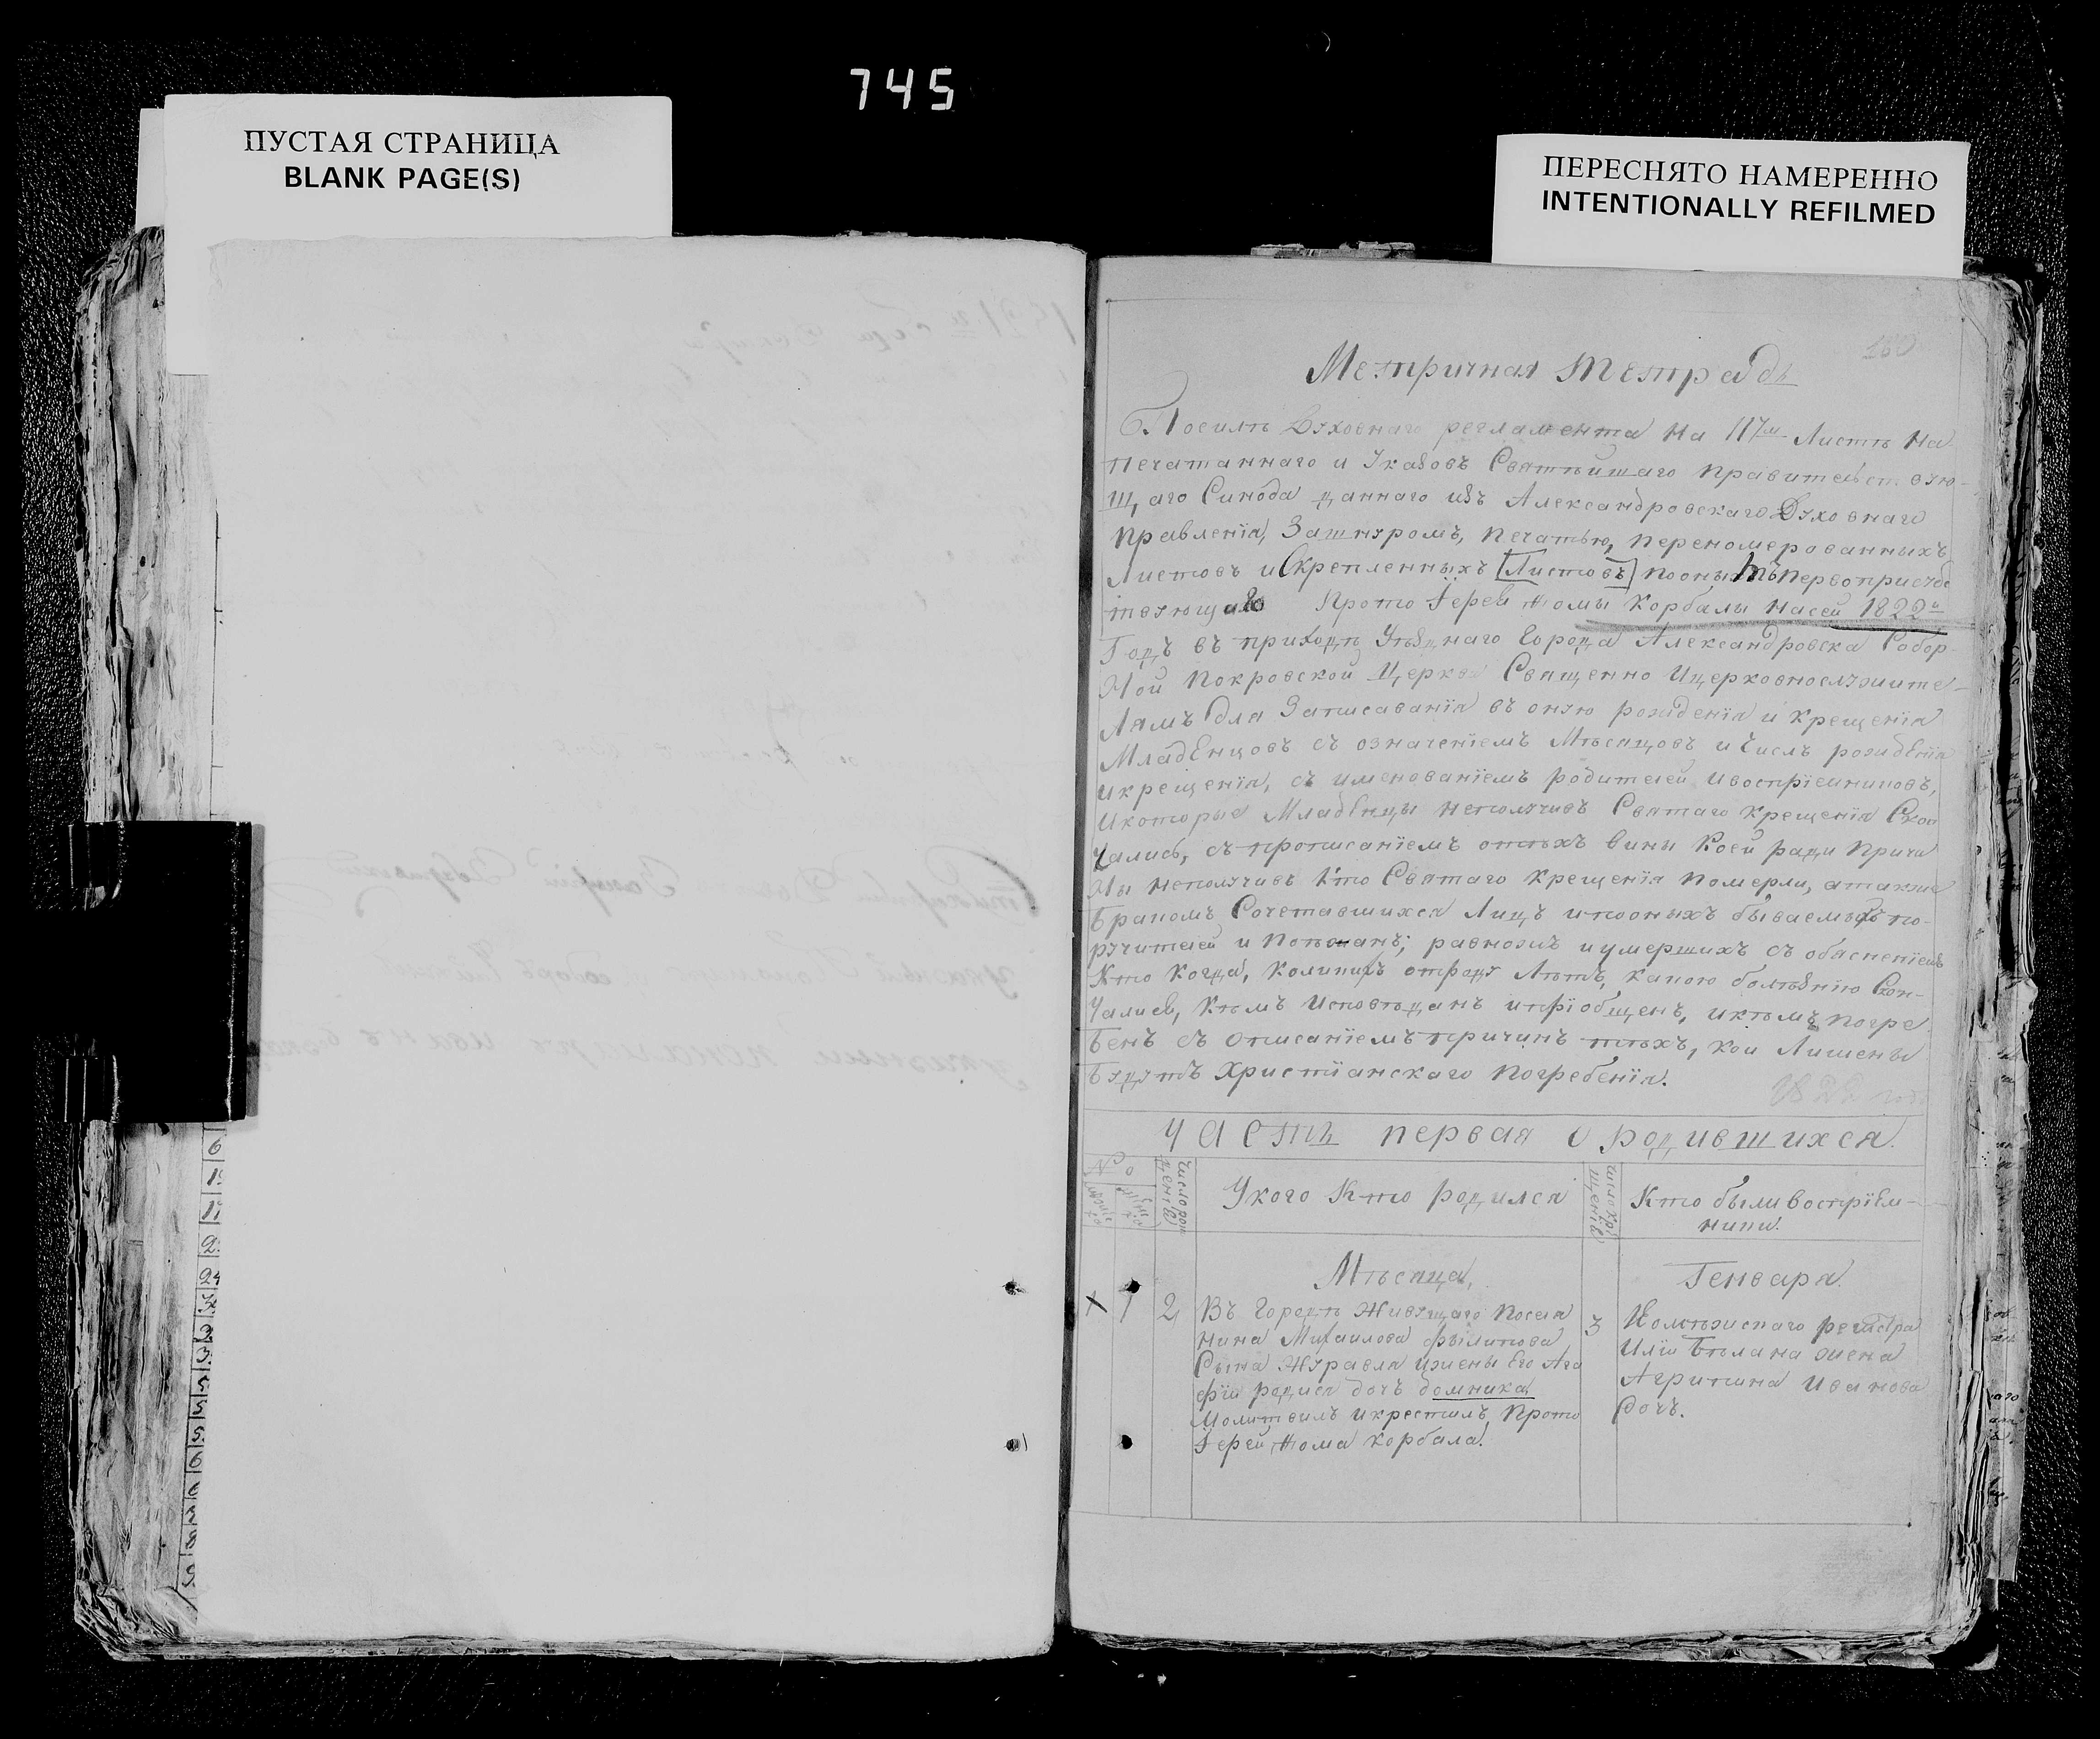 745
ПУСТАЯ СТРАНИЦА
BLANK PAGE(S)
ПЕРЕСНЯТО НАМЕРЕННО
INTENTIONALLY REFILMED
160
Метричная Тетрадь
Посилѣ Духовнаго регламента на 117м Листѣ На
печатаннаго и Указовъ Святѣйшаго правительствую-
щаго Синода даннаго изъ Александровскаго Духовнаго
правленїя, Зашнуромъ, печатью, переномерованныхъ
Листовъ и Скрепленныхъ [Листовъ] поонымъ первоприсудс
твующаго Прото Іерей Ѳомы Корбалы насей 1822й
Годъ въ приходѣ Уѣзднаго города Александровска Собор-
Ной покровской Церкви Священно Ицерковнослужите-
Лямъ для Записаванїя въ оную рождения и крещенїя
Младенцовъ съ означенїемъ Мѣсяцовъ и Числъ рожденїя
икрещенїя, съ именованїемъ родителей ивоспрїемниковъ,
Икоторые Младенцы неполучивъ Святаго крещенїя Скон
чались, съ прописанїемъ отѣхъ вины Коей ради причи
Ны неполучивъ кто Святаго крещенїя померли, атакже
Бракомъ Сочетавшихся Лицъ ипооныхъ бываемыхъ по-
ручителей и Попоманъ; равножъ иумершихъ съ обясненїемъ
Кто когда, коликихъ отроду Лѣтъ, какою болѣзнїю Скон-
чались, кѣмъ Исповѣданъ ипрїобщенъ, икѣмъ погре
Бенъ съ описанїемъ причинъ тѣхъ, кои Лишены
Будутъ Христїанскаго погребенїя.
1822 год
Часть первая о родившихся.
№
Число рож
денїя
Укого Кто родился
Число кре
щенїя
Кто были воспрїем-
ники.
Мѣсяца, Генваря.
1 2 Въ городѣ Живущаго посела
нина Михаилова филипова
Сына Журавля ижены Его Ага
фїи родися дочъ домника
Молитвилъ икрестилъ Прото
Іерей Ѳома корбала.
3 Колѣжскаго регистра
Илїи Бѣлана жена
Агрипина Иванова
Дочъ.